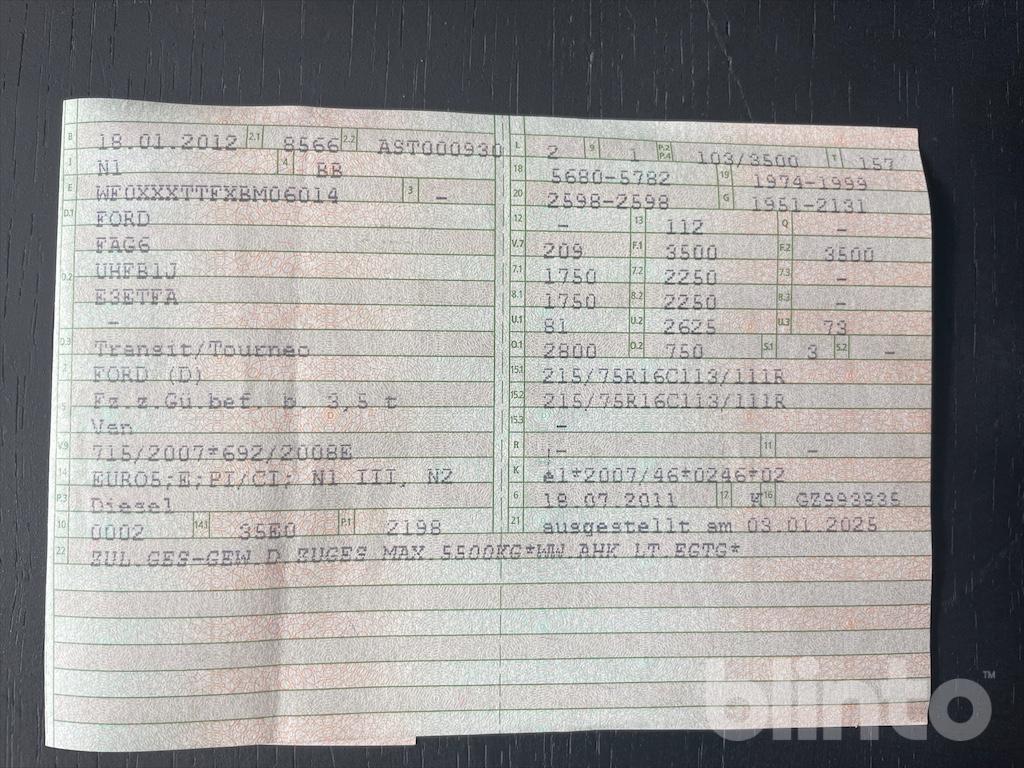 B 18.01.2012 2.1 8566 2.2 AST000930
J N1 4 BB
E WF0XXXTTFXBM06014 3 -
D.1 FORD
FAG6
D.2 UHFB1J
E3ETFA
-
D.3 Transit/Tourneo
2 FORD (D)
5 Fz.z.Gü.bef. b 3,5 t
Van
V.9 715/2007*692/2008E
14 EURO5;E;PI/CI; N1 III, N2
P.3 Diesel
10 0002 14.1 35E0 P.1 2198
22 ZUL.GES-GEW.D.ZUGES MAX.5500KG*WW.AHK LT.EGTG*
L 2 9 1 P.2 P.4 103/3500 T 157
18 5680-5782 19 1974-1999
20 2598-2598 G 1951-2131
12 - 13 112 Q -
V.7 209 F.1 3500 F.2 3500
7.1 1750 7.2 2250 7.3 -
8.1 1750 8.2 2250 8.3 -
U.1 81 U.2 2625 U.3 73
O.1 2800 O.2 750 S.1 3 S.2 -
15.1 215/75R16C113/111R
15.2 215/75R16C113/111R
15.3 -
R - 11 -
K e1*2007/46*0246*02
6 18.07.2011 17 K 16 GZ993835
21 ausgestellt am 03.01.2025
blinto™